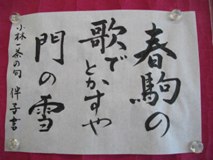 春駒の
歌でとかすや
門の雪
小林一茶の句 伴子書